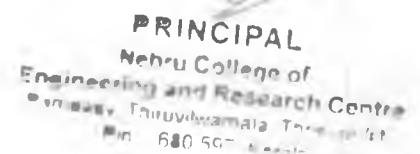 PRINCIPAL
Nehru College of
Engineering and Research Centre
Thiruvilwamala
Pin 680 597